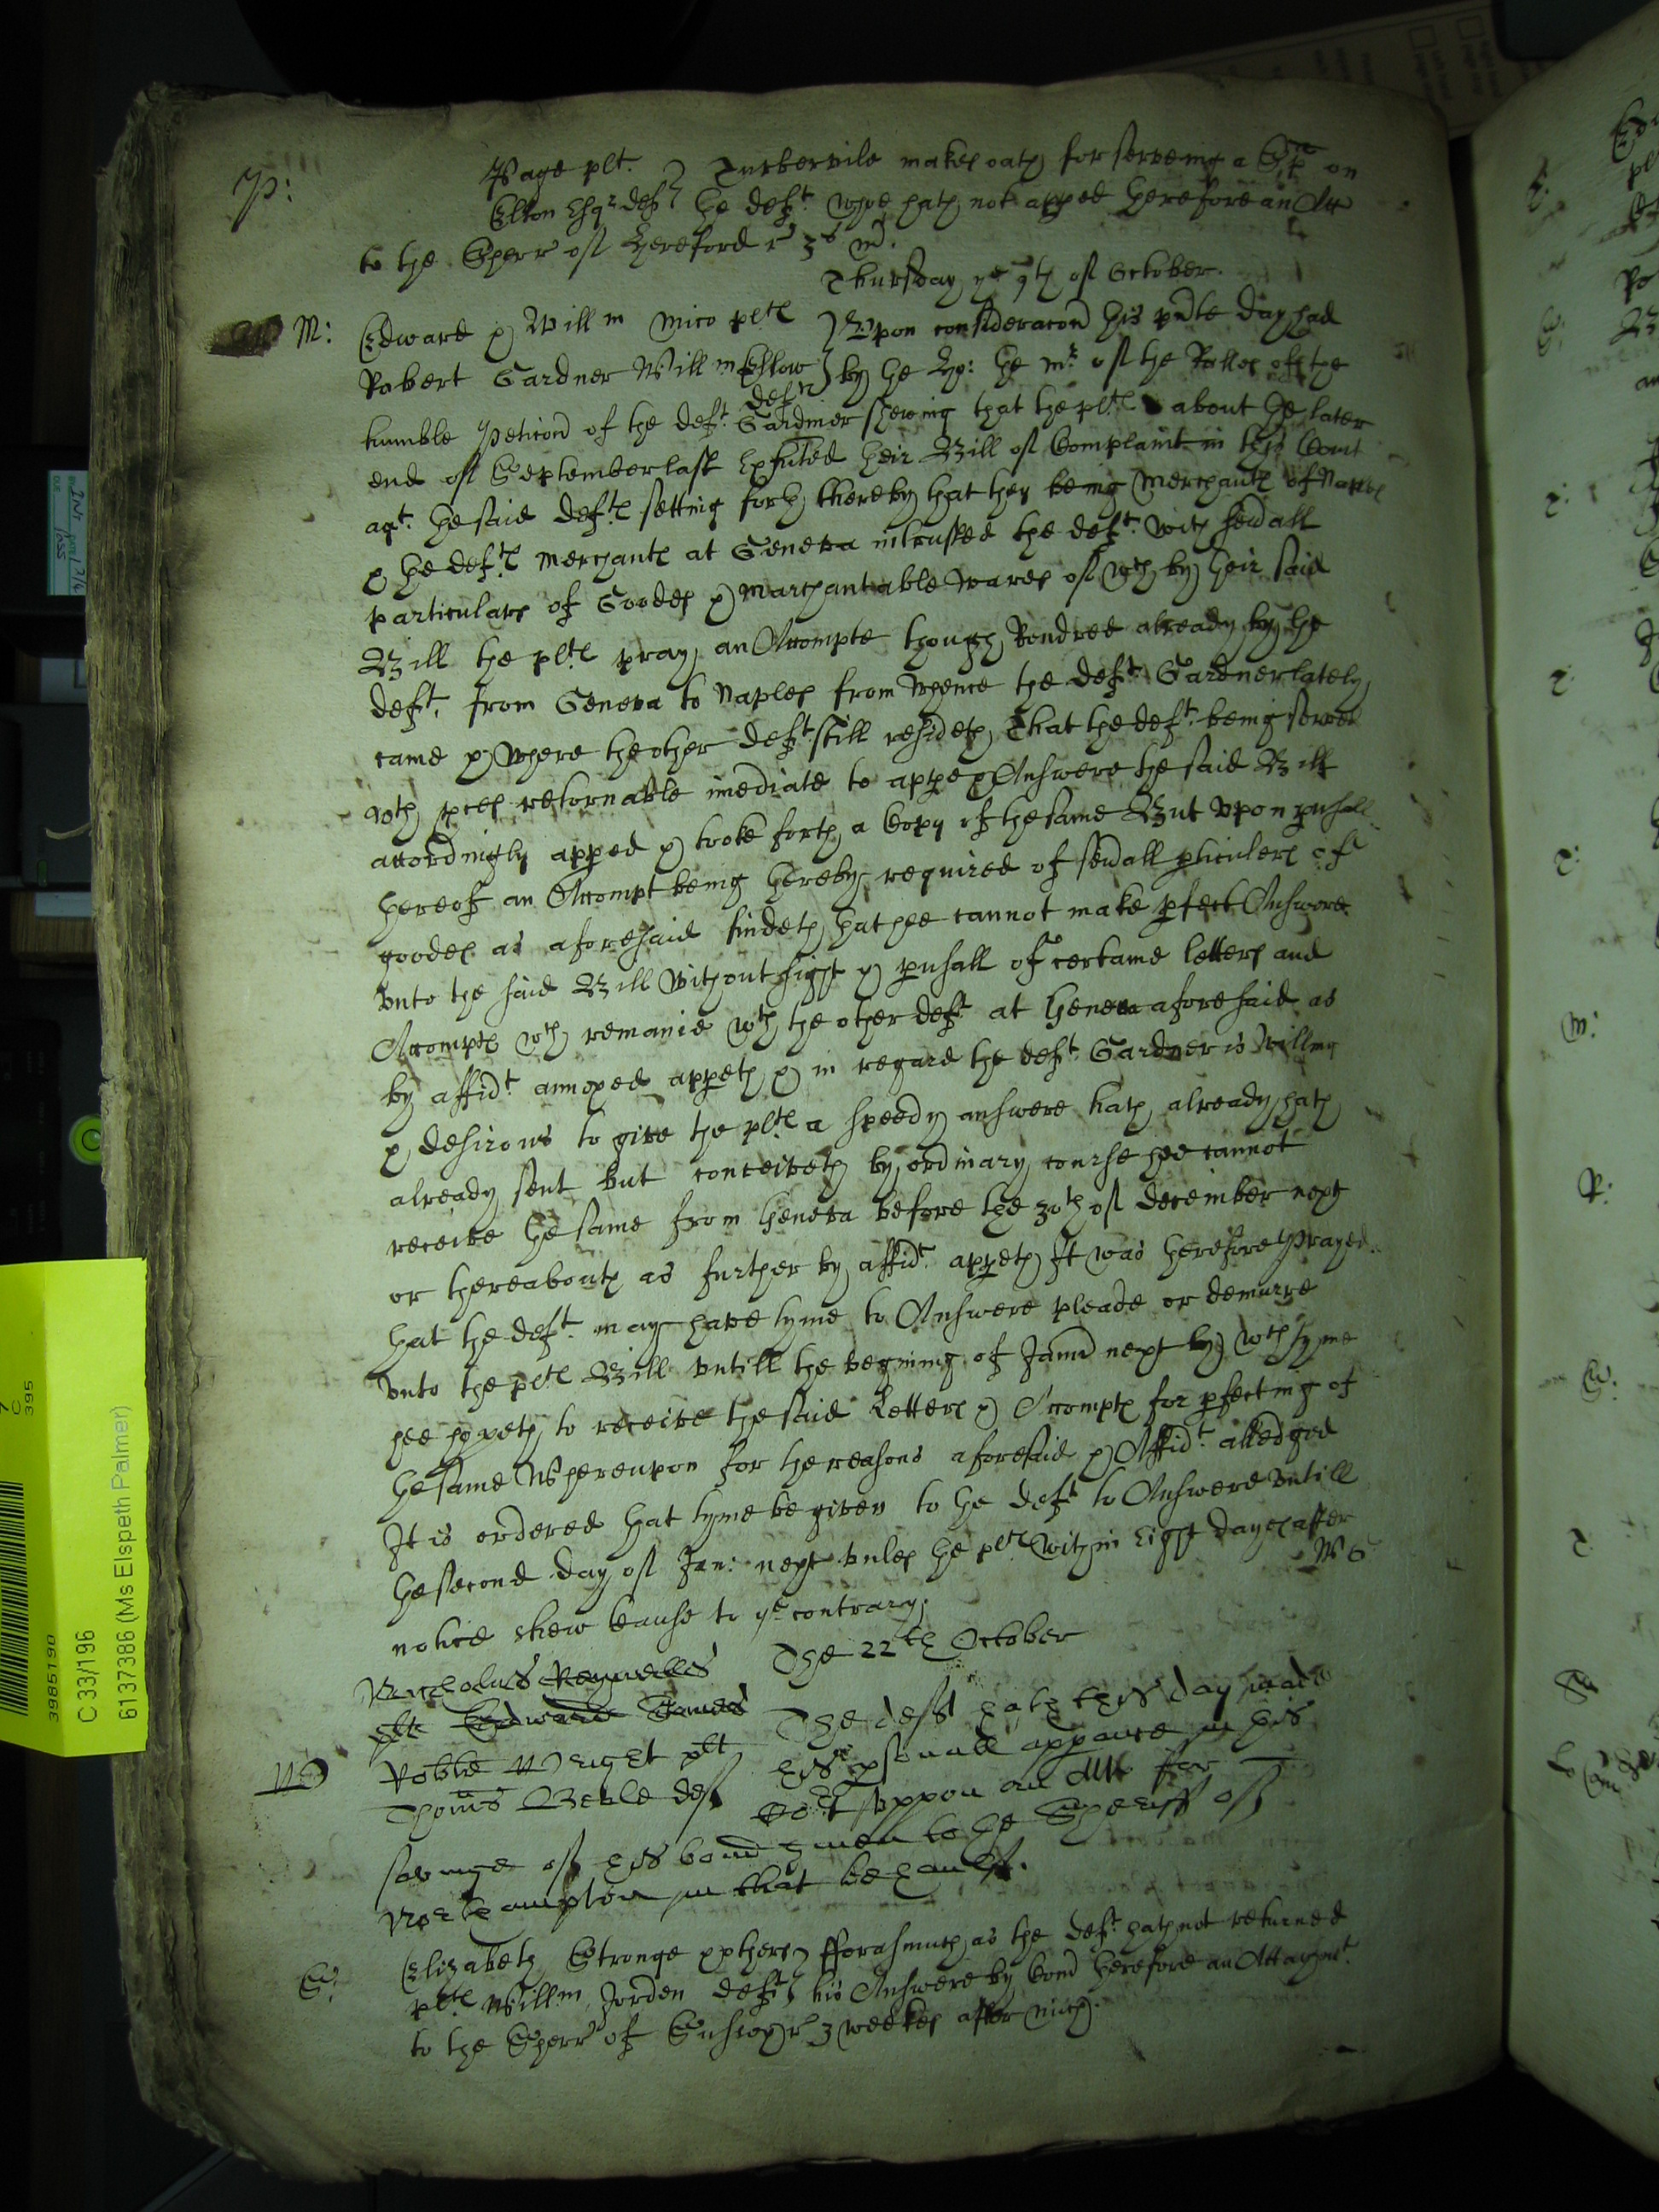 P:
Page plt. } Turbervile makes oath for serveing a Spa on
Elton Esqr deft } the deft whoe hath not apped therefore an Att
to the Sherr of Hereford r 3s m.
Thursday ye 9th of October.
M: Edward & Willm Mico plts } Upon consideracon this pnte day had
Robert Gardner Willm Ellow } by the Ho: the Mr of the Rolles of the
defts
humble Peticon of the deft Gardiner shewing that the plts about the later
end of September last exhited their Bill of Complaint in this Court
agt. the said defts setting forth thereby that they being Merchants of Naples
& the defts Merchants at Geneva intrusted the deft with sevall
particulars of Goodes & Marchantable wares of wch by their said
Bill the plts pray an Accompte though Rendred already by the
deft. from Geneva to Naples from whence the deft Gardner lately
came & where the other deft still resideth That the deft being served
wth pces retornable imediate to appe & Answere the said Bill
accordingly apped & tooke forth a Copy of the same But upon pusall
thereof an Accompt being thereby required of sevall pticulers of
goodes as aforesaid findeth that hee cannot make pfect Answere
unto the said Bill without sight & pusall of certaine letters and
Accompts wch remaine wth the other deft at Geneva aforesaid as
by affidt annexed appeth & in regard the deft Gardner is willing
& desirous to give the plts a speedy answere hath already hath
already sent but conceiveth by ordinary course hee cannot
receive the same from Geneva before the 30th of december next
or thereabouts as further by affidt appeth It was therefore Prayed
that the deft may have tyme to Answere pleade or demurre
unto the plts Bill untill the begining of Janu next by wch tyme
hee hopeth to receive the said Letters & Accompts for pfecting of
the same Whereupon for the reasons aforesaid & Affidt alledged
It is ordered that tyme be given to the deft to Answere untill
the second day of Jan: next unles the plts within eight dayes after
notice shew cause to ye contrary.
The 22th October
Nicholus Reynells
plt Edward James
Thomas deft The deft hath this day made
his psonall appance in this
Cort uppon an Att for
savinge of his band given to the Sheriff of
Northampton in that behaulfe.
S: Elizabeth Stronge & others } fforasmuch as the deft hath not returned
plts Willm Jorden deft } his Answere by Comd therefore an Attachmt
to the Sherr of 3 weekes after mich.
3985190
C 33/196
6137386 (Ms Elspeth Palmer)
7
C
395